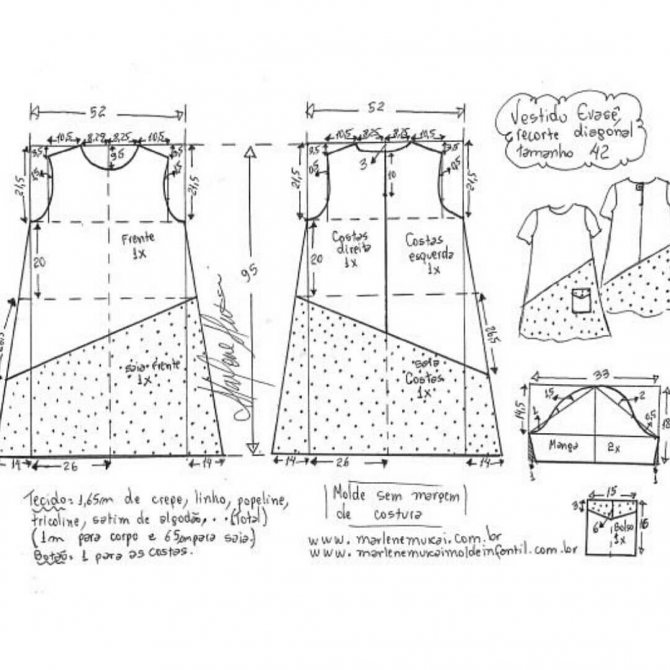 Vestido Evasê,
recorte diagonal
tamanho 42
52
10,5 8,25 8,25 10,5
3,5
9,5
21,5
21,5
Frente
1x
20
saia frente
1x
14
26
14
95
52
10,5 8,25 8,25 10,5
3
10
21,5
21,5
Costas
direita
1x
Costas
esquerda
1x
20
26,5
saia
Costas
1x
14
26
14
33
14,5
1,5
2
1
0,5
18
Manga
2x
1
1
15
3
6
Bolso
1x
16
Tecido: 1,65m de crepe, linho, popeline,
tricoline, satim de algodão, ... (total)
(1m para corpo e 65cm para saia)
Botão: 1 para as costas.
Molde sem margem
de costura
www.marlenemukai.com.br
www.marlenemukaimoldeinfantil.com.br